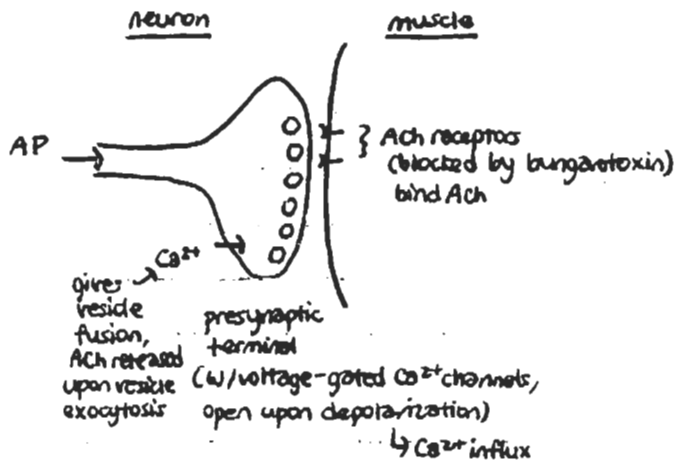 neuron
muscle
AP
ACh receptors
(blocked by bungarotoxin)
bind ACh
Ca²⁺
gives
vesicle
fusion,
ACh released
upon vesicle
exocytosis
presynaptic
terminal
(w/voltage-gated Ca²⁺ channels,
open upon depolarization)
↳ Ca²⁺ influx